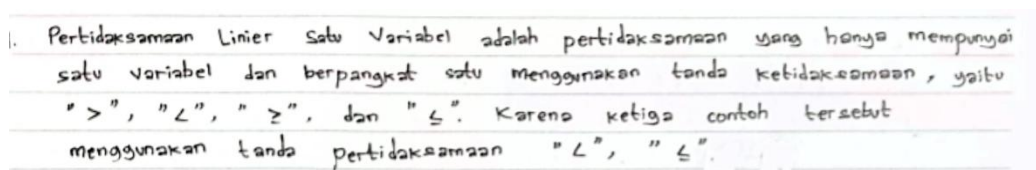 1. Pertidaksamaan Linier Satu Variabel adalah pertidaksamaan yang hanya mempunyai
satu variabel dan berpangkat satu menggunakan tanda ketidaksamaan, yaitu
">", "<", "≥", dan "≤". Karena ketiga contoh tersebut
menggunakan tanda pertidaksamaan "<", "≤".